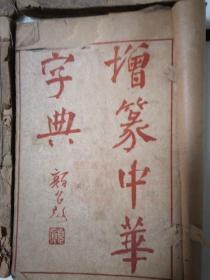 增篆中華
字典